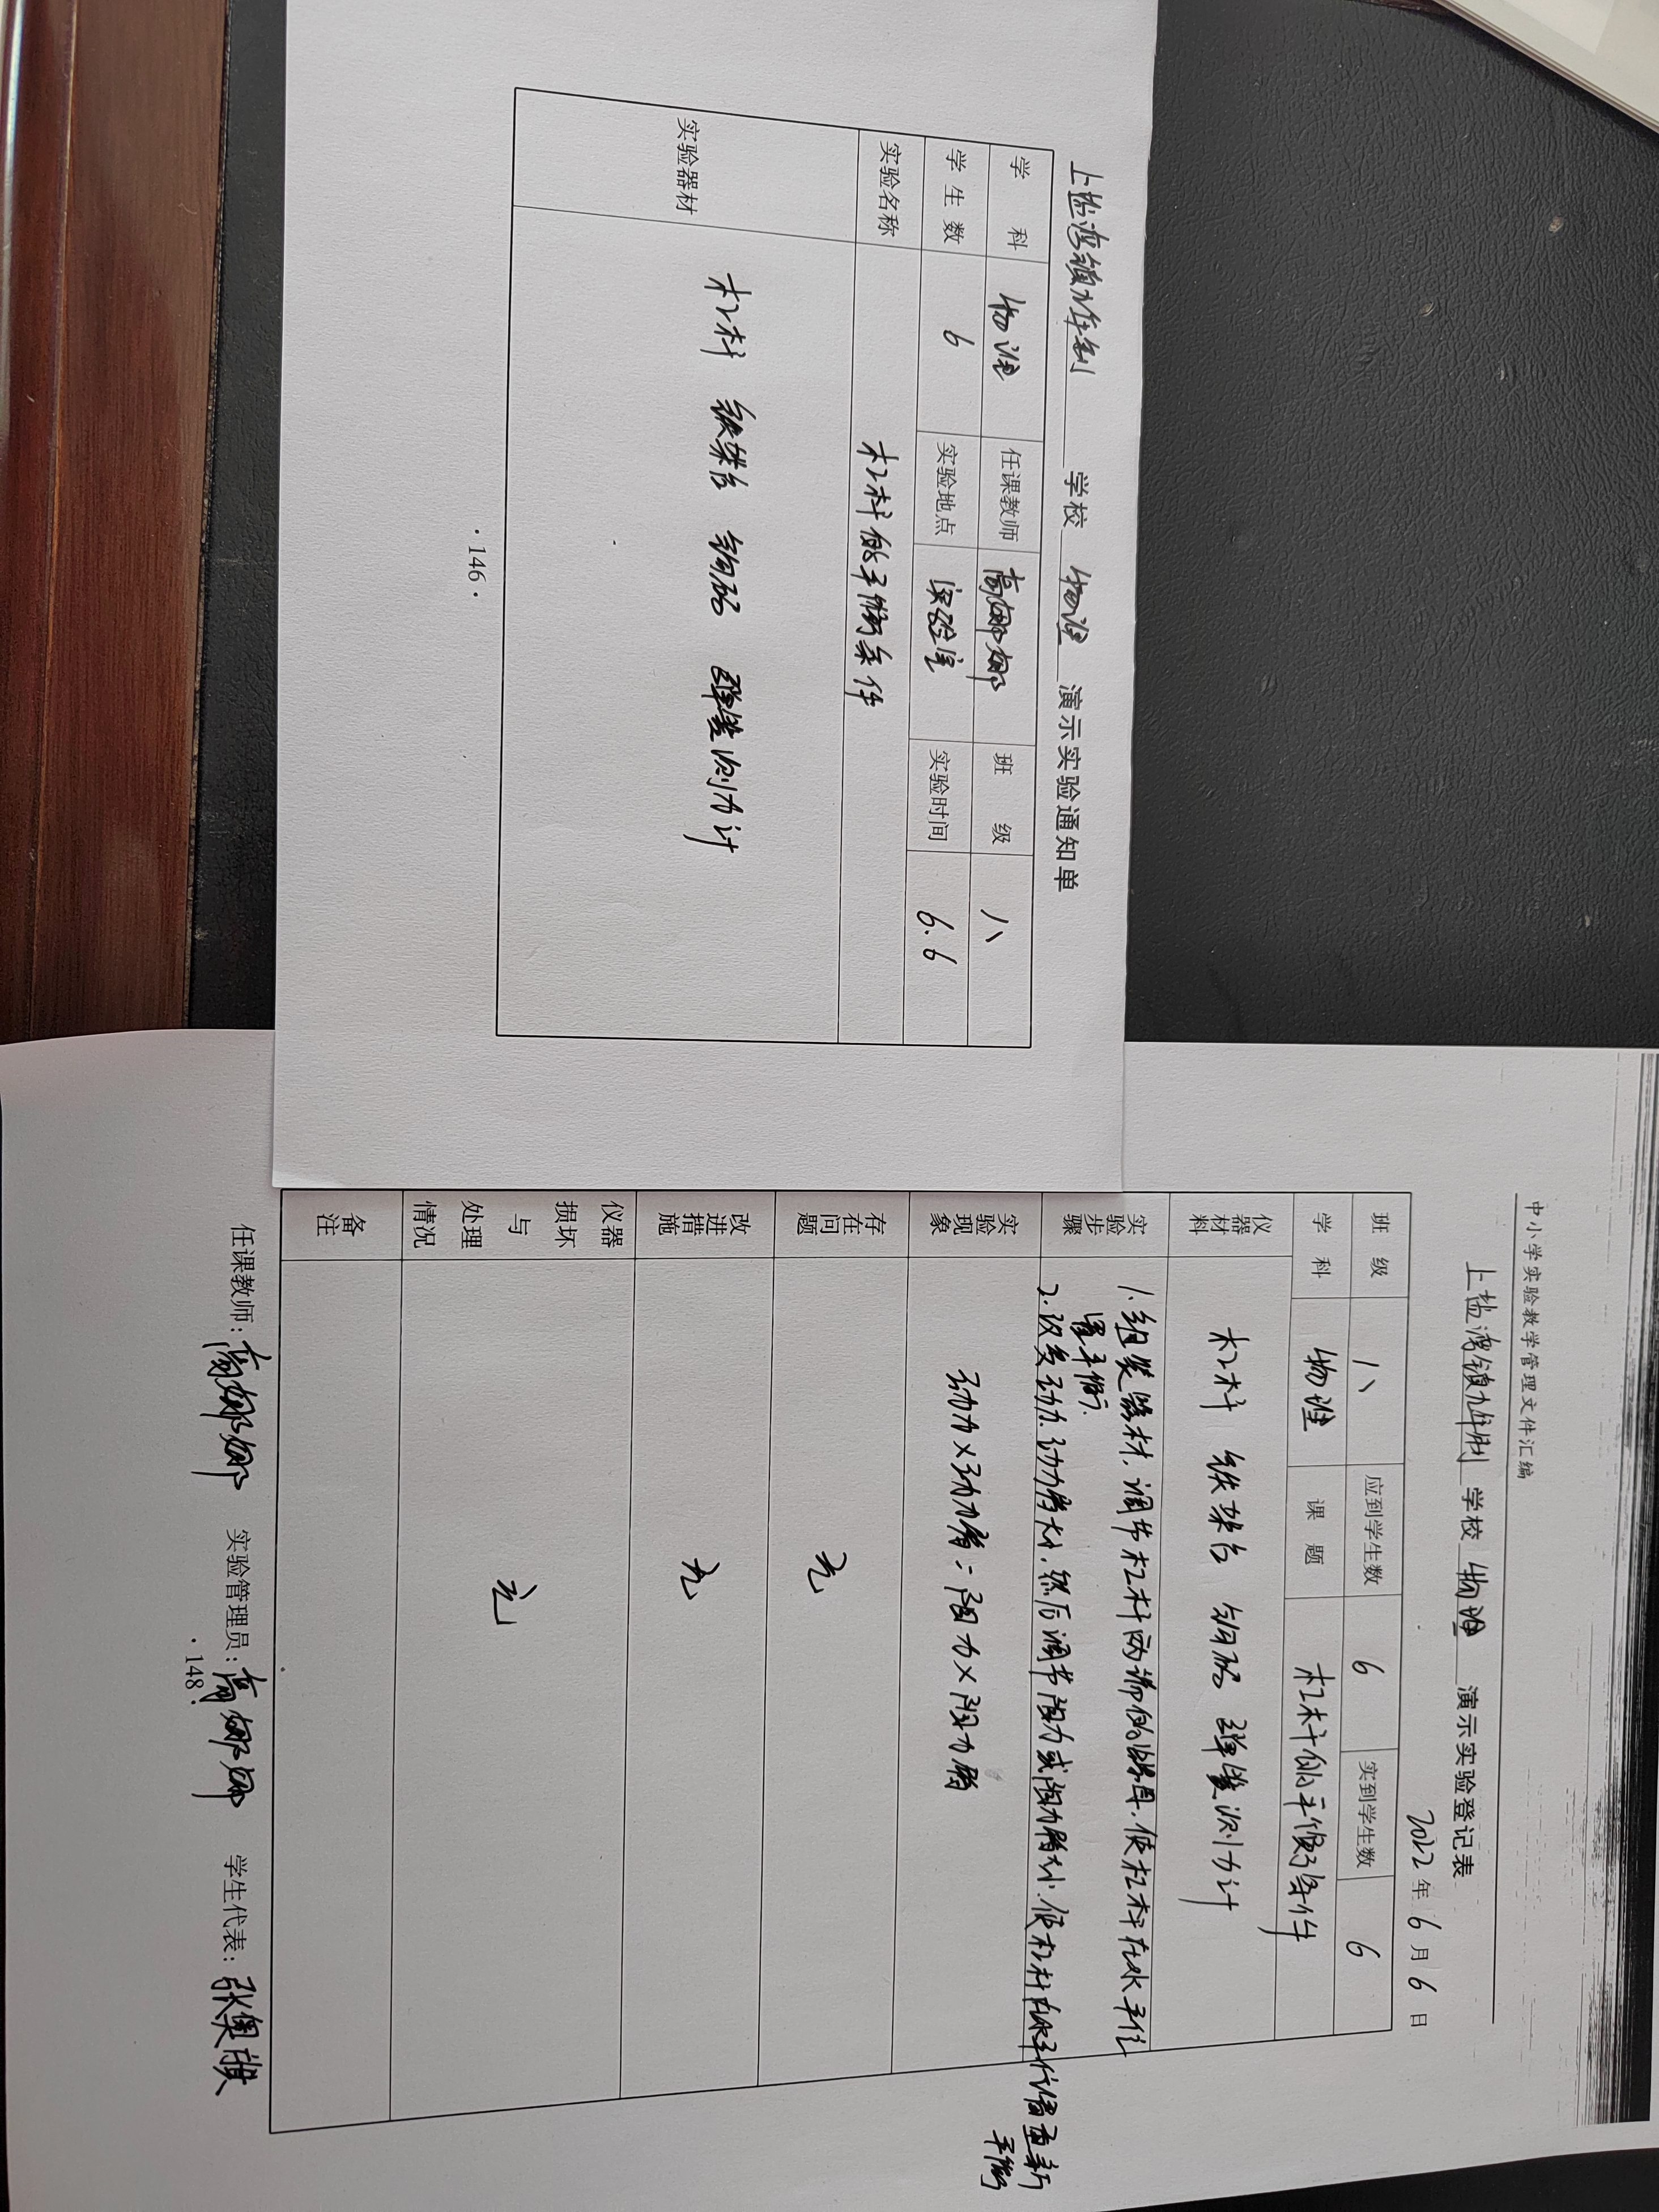 上盐湾镇九年制 学校 物理 演示实验通知单
学 科 物理 任课教师 高娜娜 班 级 八
学 生 数 6 实验地点 实验室 实验时间 6.6
实验名称 杠杆的平衡条件
实验器材 杠杆 铁架台 钩码 弹簧测力计
·146·
中小学实验教学管理文件汇编
上盐湾镇九年制 学校 物理 演示实验登记表
2022年6月6日
班 级 八 应到学生数 6 实到学生数 6
学 科 物理 课 题 杠杆的平衡条件
仪器材料 杠杆 铁架台 钩码 弹簧测力计
实验步骤 1.组装器材,调节杠杆两端的螺母,使杠杆在水平位
置平衡.
2.改变动力.动力臂大小,然后调节阻力或阻力臂大小.使杠杆在水平位置重新
平衡
实验现象 动力×动力臂=阻力×阻力臂
存在问题 无
改进措施 无
仪器损坏与处理情况 无
备注
任课教师:高娜娜 实验管理员:高娜娜 学生代表:张奥
·148·